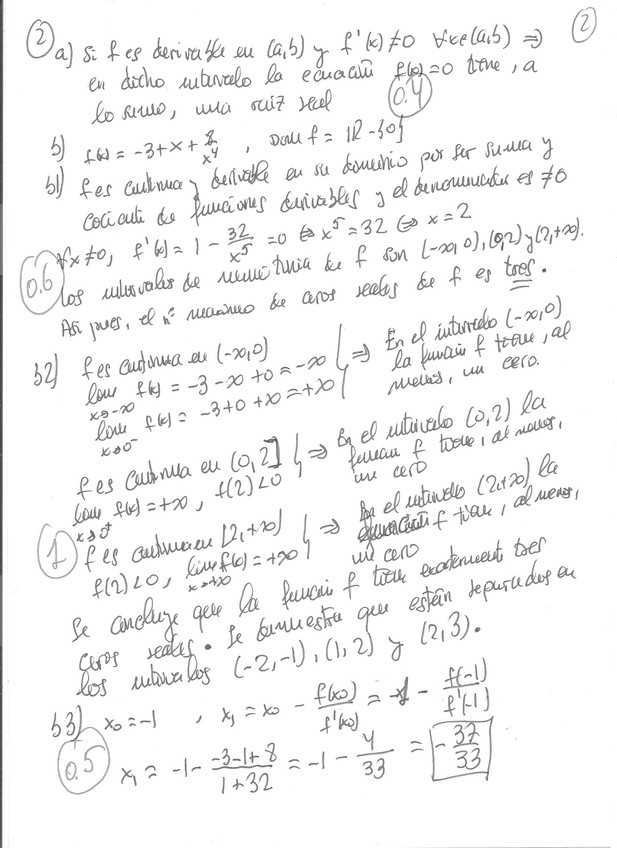 2 a) Si f es derivable en (a,b) y f'(x)≠0 ∀x∈(a,b) ⇒ 2
en dicho intervalo la ecuación f(x)=0 tiene, a
lo sumo, una raiz real 0.4
b) f(x) = -3+x+8/x⁴, Dom f = ℝ-{0}
b1) f es continua y derivable en su dominio por ser suma y
cociente de funciones derivables y el denominador es ≠0
∀x≠0, f'(x) = 1 - 32/x⁵ = 0 ⇔ x⁵ = 32 ⇔ x = 2
0.6 Los intervalos de monotonía de f son (-∞,0), (0,2) y (2,+∞).
Asi pues, el nº maximo de ceros reales de f es tres.
b2) f es continua en (-∞,0)
lim x→-∞ f(x) = -3-∞+0 = -∞
lim x→0⁻ f(x) = -3+0+∞ = +∞
⇒ En el intervalo (-∞,0)
la función f tiene, al
menos, un cero.
f es continua en (0,2]
lim x→0⁺ f(x) = +∞, f(2)<0
⇒ En el intervalo (0,2) la
función f tiene, al menos,
un cero
1 f es continua en [2,+∞)
f(2)<0, lim x→+∞ f(x) = +∞
⇒ En el intervalo (2,+∞), la
f tiene, al menos,
un cero
Se concluye que la función f tiene exactamente tres
ceros reales. Se demuestra que están separados en
los intervalos (-2,-1), (1,2) y (2,3).
b3) x₀=-1, x₁ = x₀ - f(x₀)/f'(x₀) = -1 - f(-1)/f'(-1)
0.5 x₁ = -1 - (-3-1+8)/(1+32) = -1 - 4/33 = -37/33